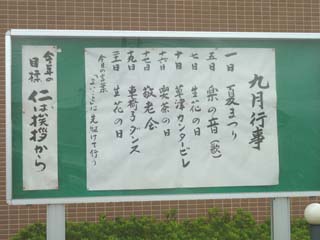 九月行事
一日 夏まつり
五日 楽の音(歌)
七日 生花の日
十日 草津カンタービレ
十六日 喫茶の日
十七日 敬老会
十九日 車椅子ダンス
二十一日 生花の日
今月の言葉
先駆けて行う
今年の目標
仁は挨拶から